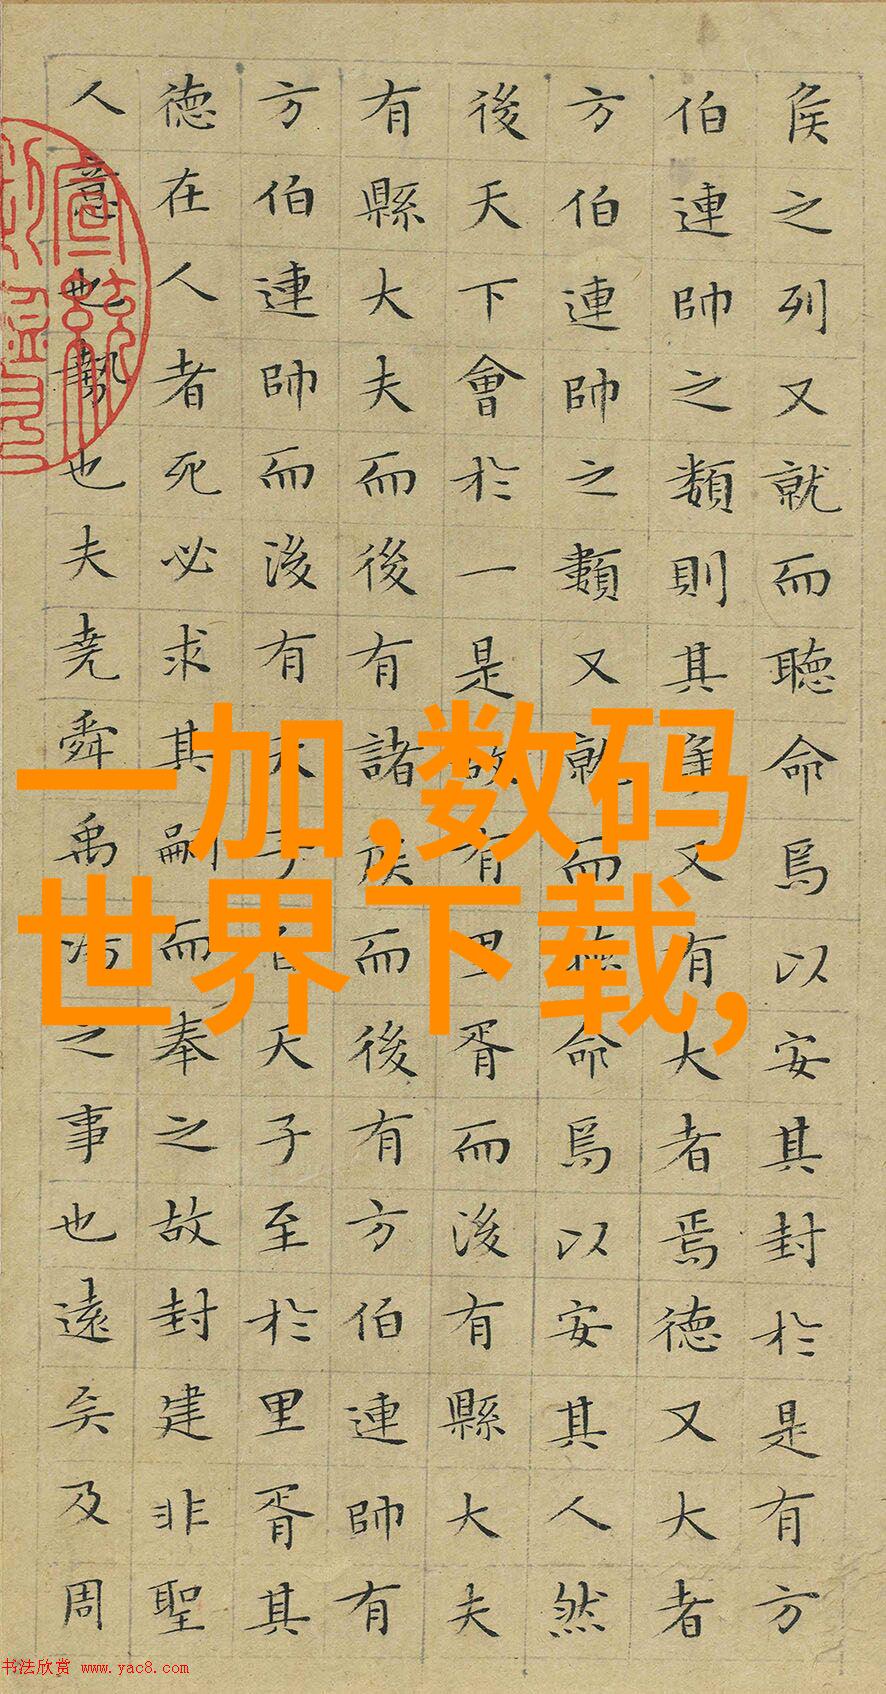 侯之列又就而聽命焉以安其封於是有方
伯連帥之類則其爭又有大者焉德又大者
方伯連帥之類又就而聽命焉以安其人然
後天下會於一是故有里胥而後有縣大夫
有縣大夫而後有諸侯而後有方伯連帥有
方伯連帥而後有天子自天子至於里胥其
德在人者死必求其嗣而奉之故封建非聖
人意也勢也夫堯舜禹湯之事也遠矣及周
一加,数码
世界下载,
书法欣赏 www.yac8.com